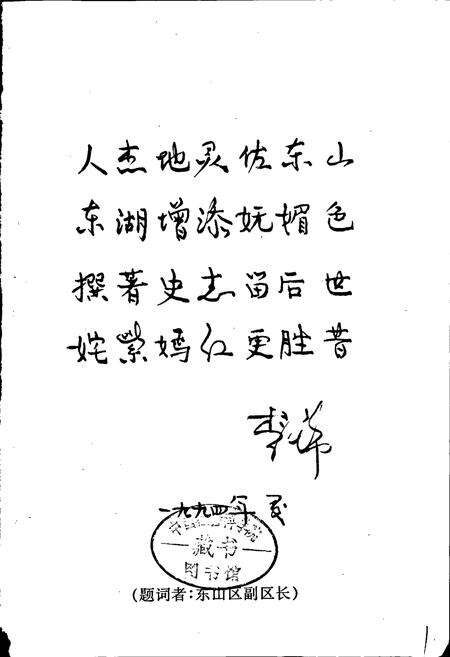 人杰地灵佐东山
东湖增添妩媚色
撰著史志留后世
姹紫嫣红更胜昔
一九九四年夏
藏书
图书馆
(题词者:东山区副区长)
1